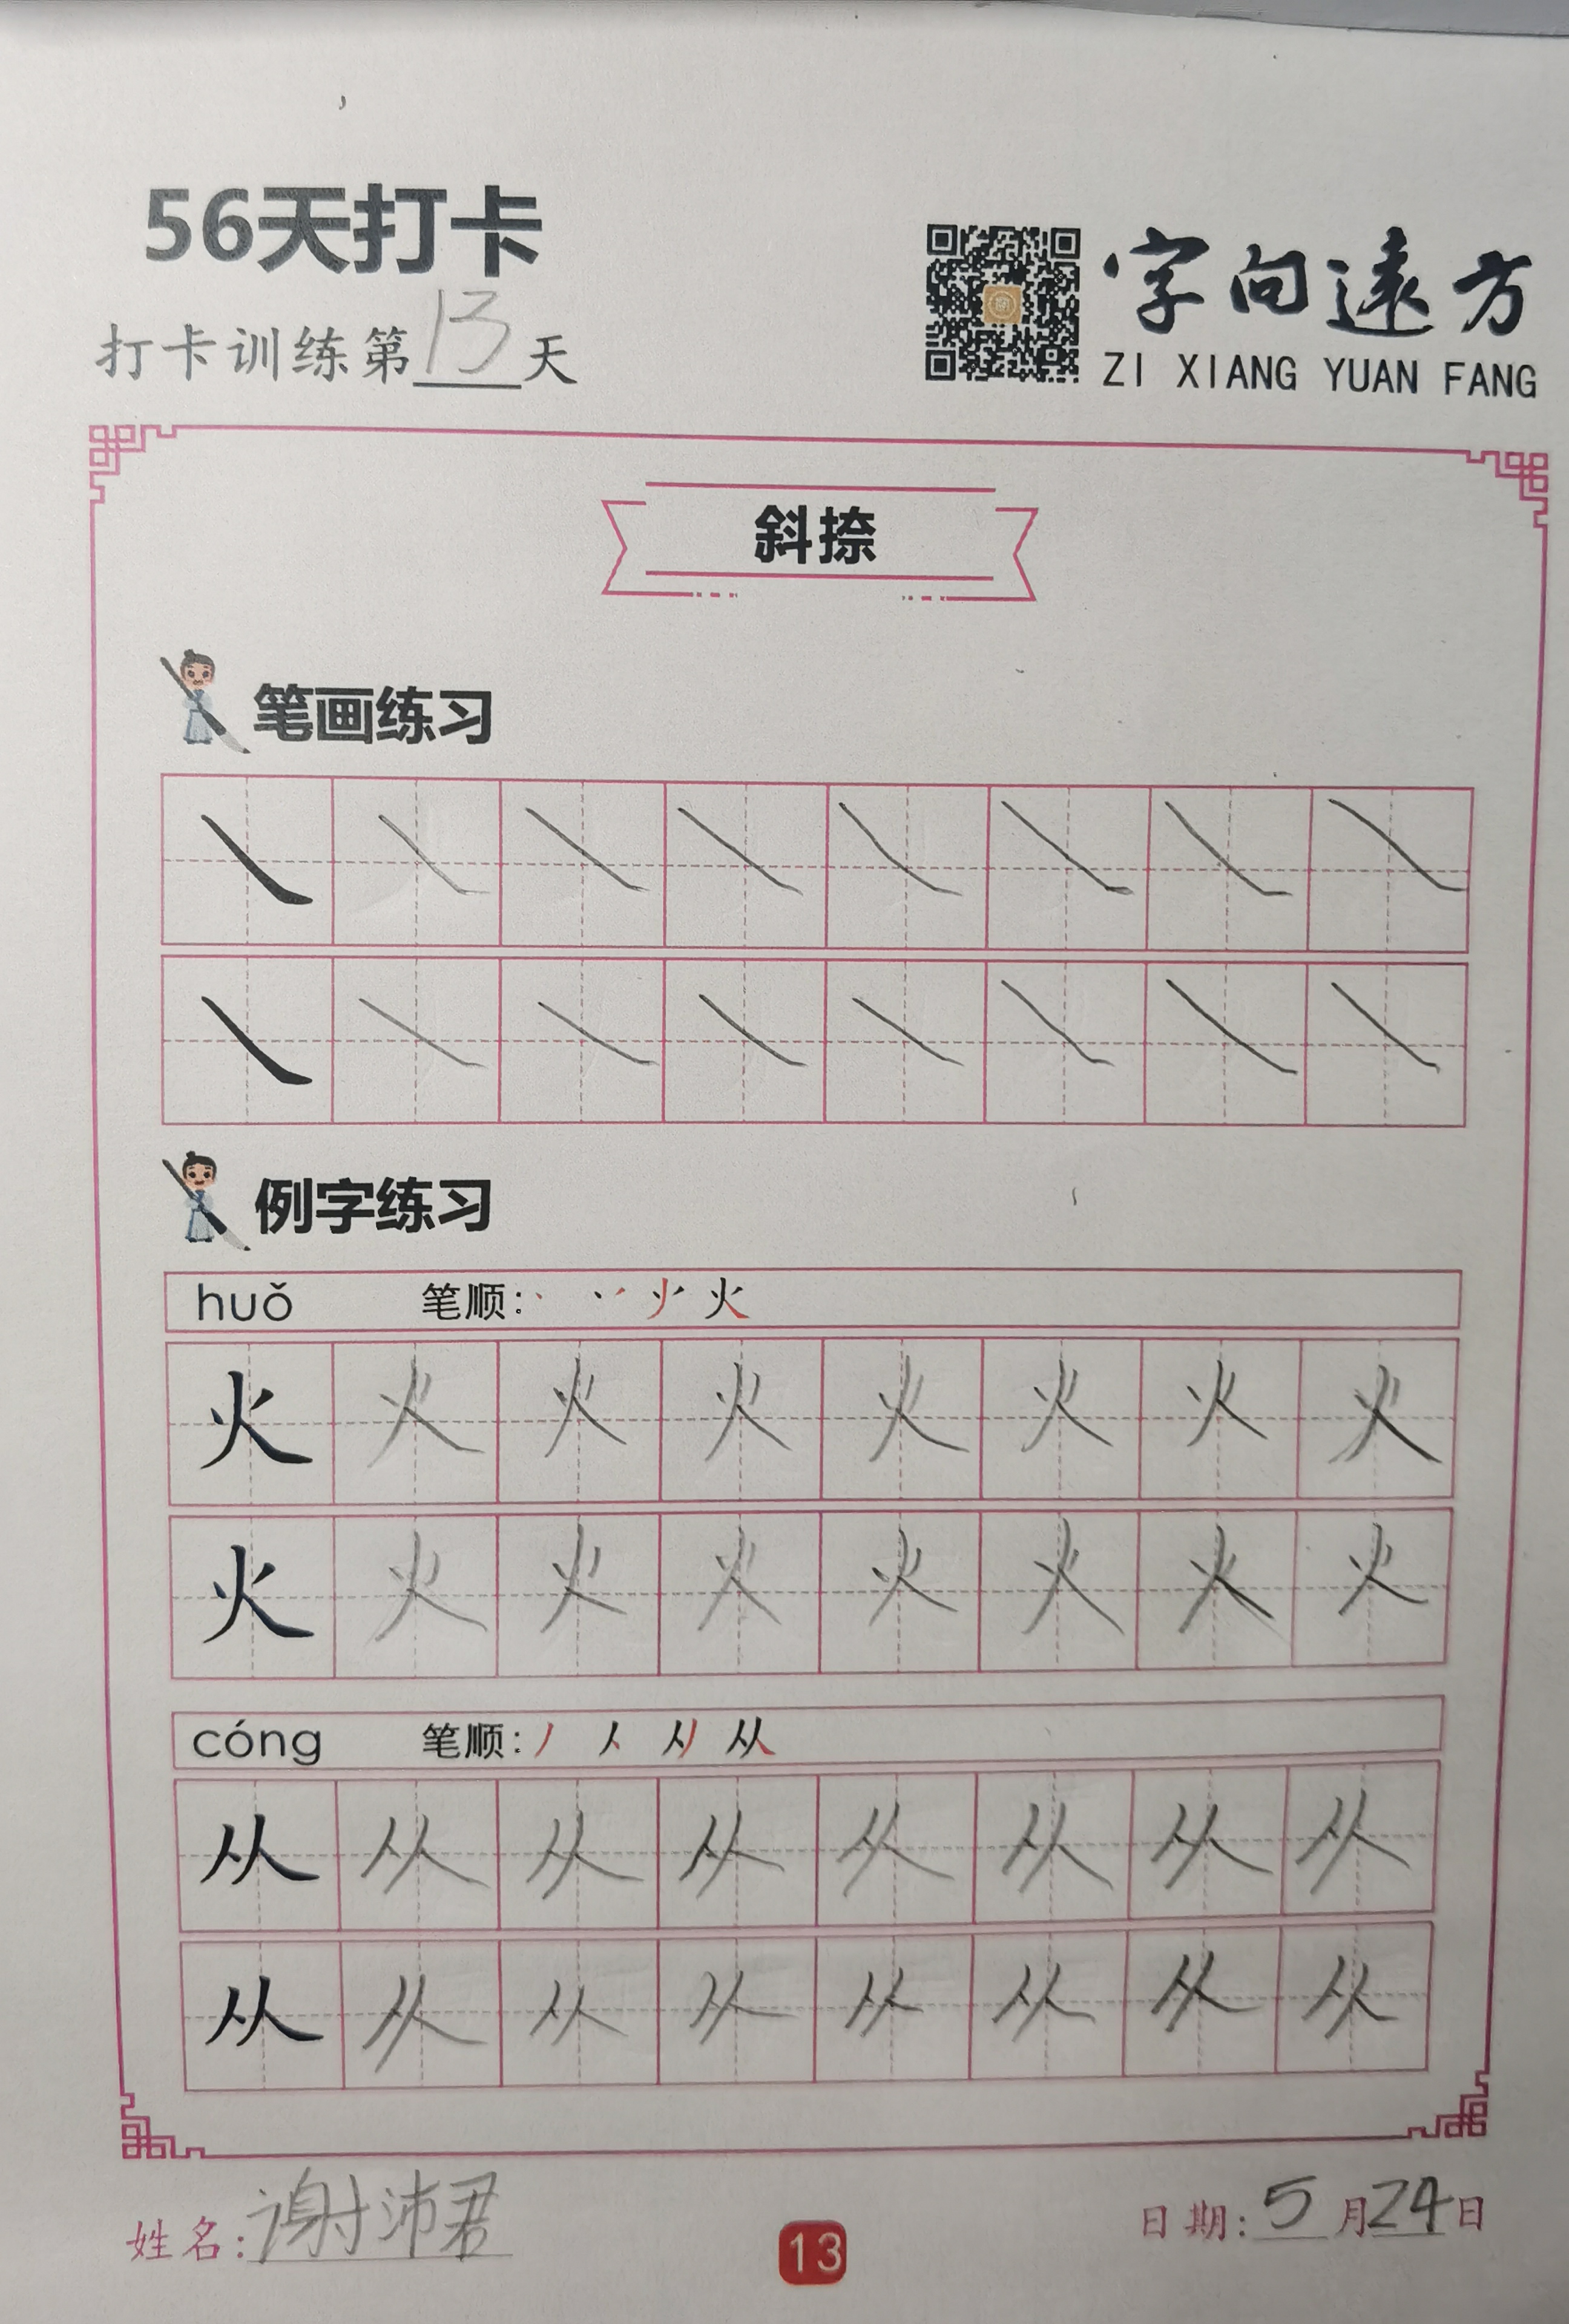 56天打卡
打卡训练第13天
字向遠方
ZI XIANG YUAN FANG
斜捺
笔画练习
例字练习
huǒ 笔顺: 火
火 火 火 火 火 火 火 火
火 火 火 火 火 火 火 火
cóng 笔顺: 丿 人 从
从 从 从 从 从 从 从 从
从 从 从 从 从 从 从 从
姓名: 谢沛君
13
日期: 5月24日